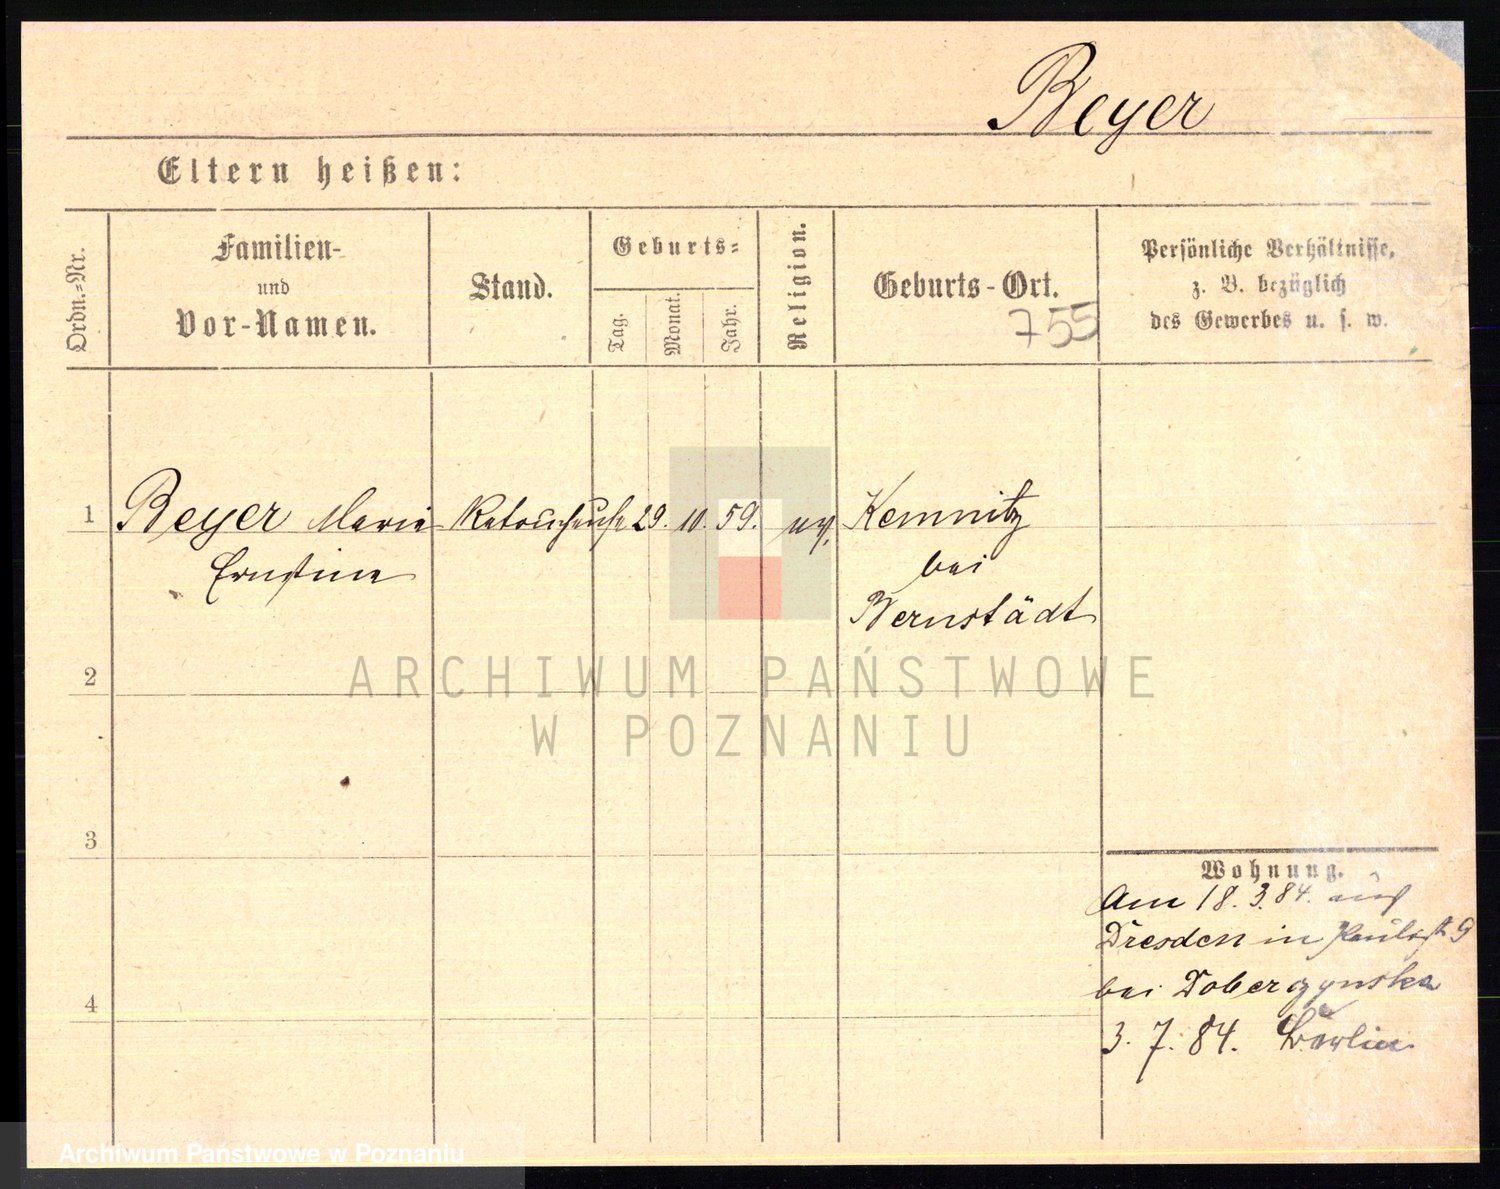 Beyer
Eltern heißen:
Ordn.=Nr.
Familien-
und
Vor-Namen.
Stand.
Geburts=
Tag.
Monat.
Jahr.
Religion.
Geburts-Ort.
755
Persönliche Verhältnisse,
z. B. bezüglich
des Gewerbes u. s. w.
1
Beyer Marie
Ernstine
29. 10. 59.
Kemnitz
bei
Bernstädt
2
3
4
Wohnung.
Am 18. 3. 84. aus
Dresden in Paulist 9
bei
3. 7. 84. Berlin
ARCHIWUM PAŃSTWOWE
W POZNANIU
Archiwum Państwowe w Poznaniu